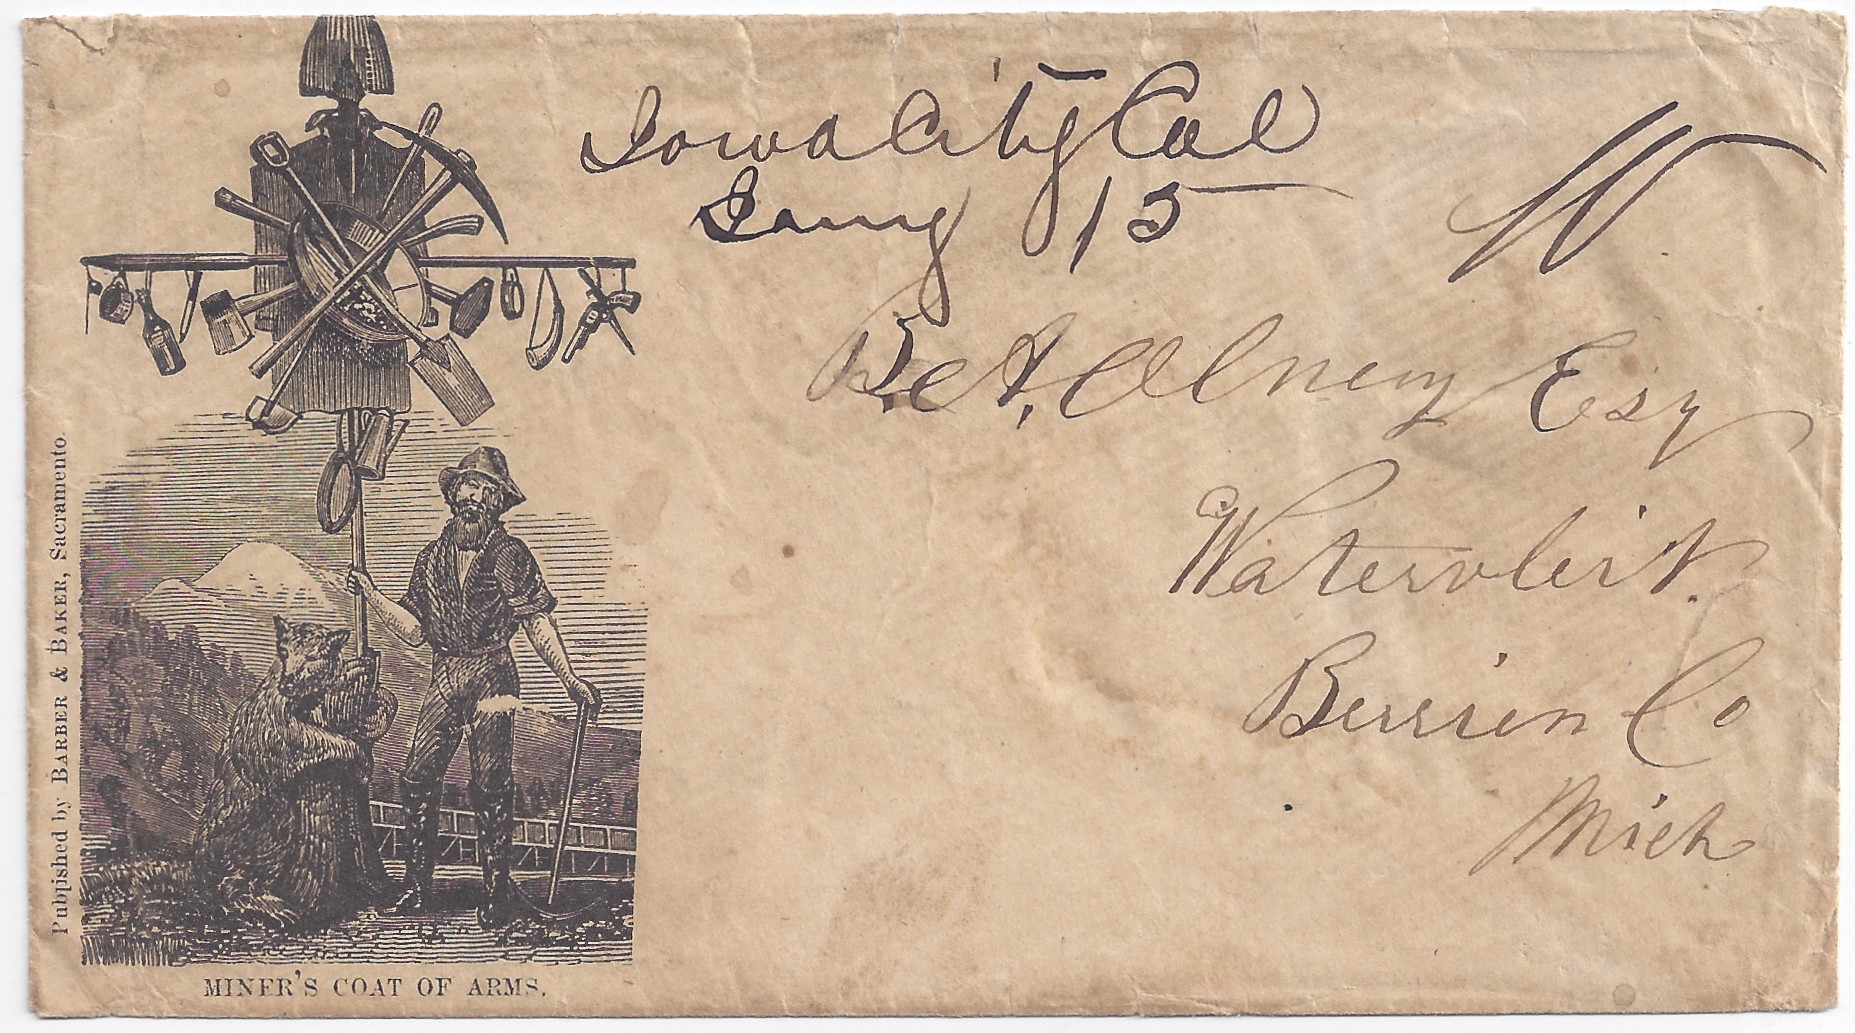 Iowa City Cal
Jany 15
10
B. A. Olney Esq
Watervleirt.
Berrien Co
Mich
Published by BARBER & BAKER, Sacramento.
MINER'S COAT OF ARMS.